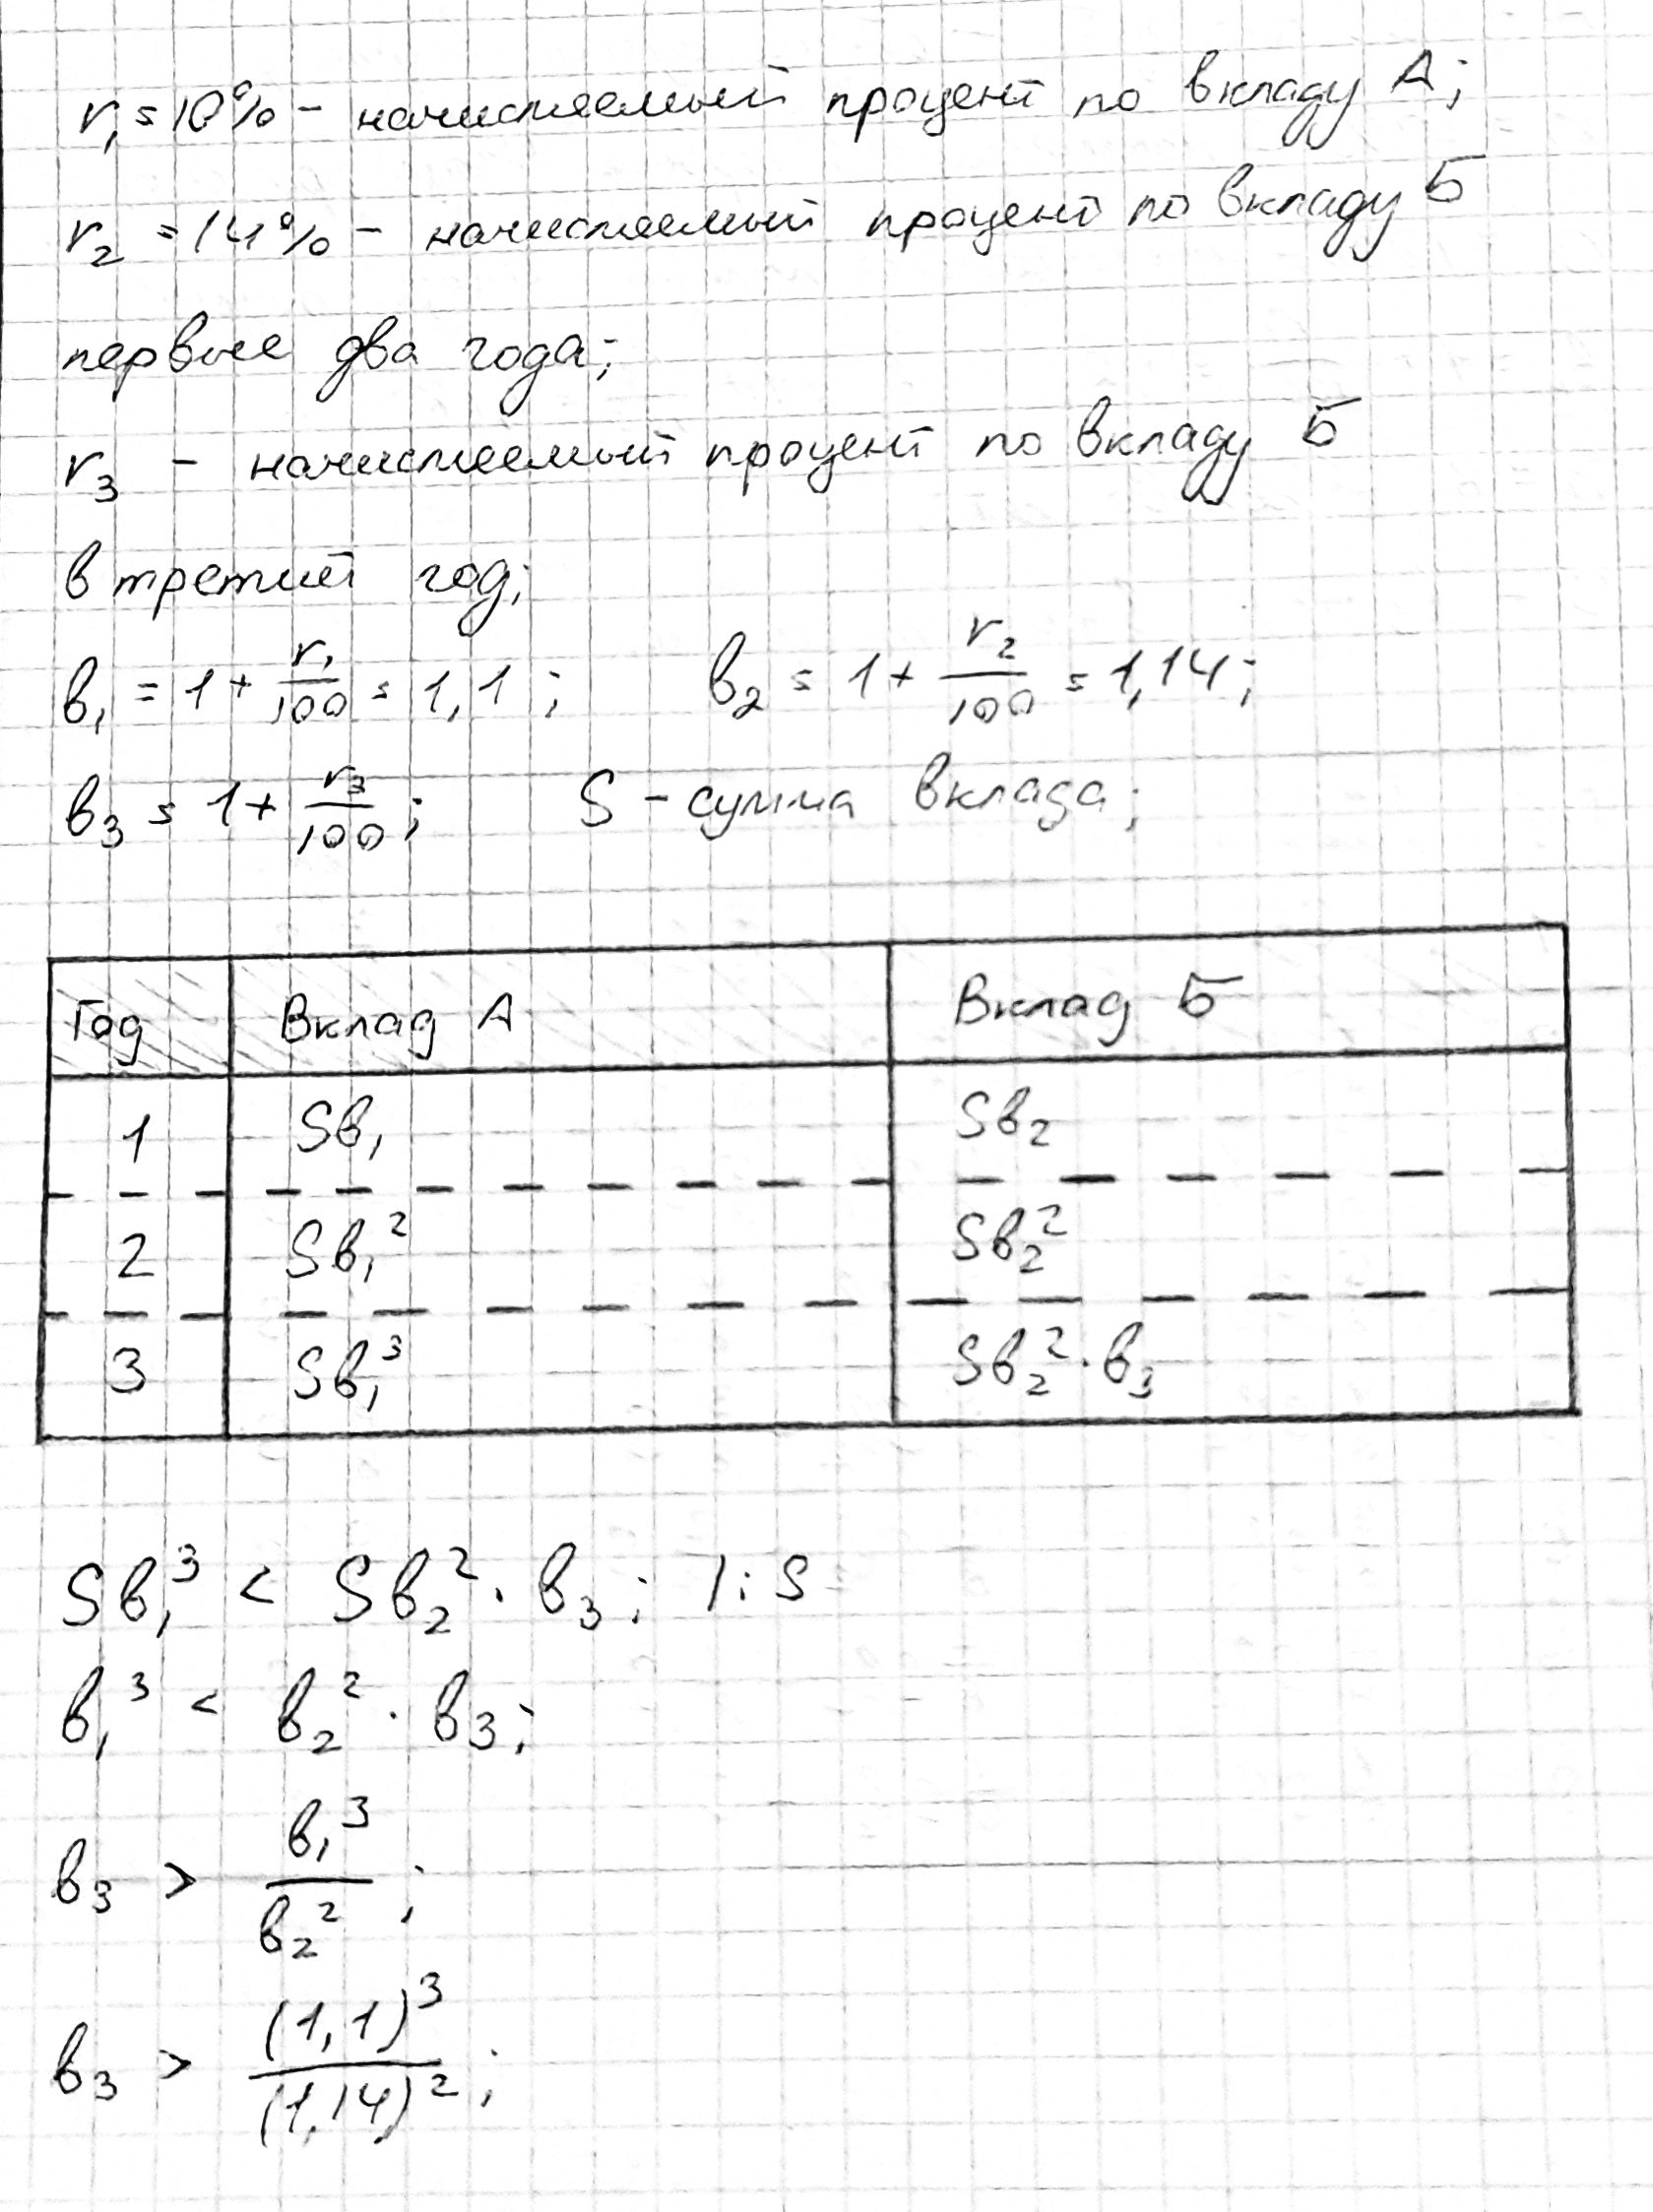 r₁ = 10% - начисляемый процент по вкладу А;
r₂ = 14% - начисляемый процент по вкладу Б
первые два года;
r₃ - начисляемый процент по вкладу Б
в третий год;
b₁ = 1 + r₁/100 = 1,1; b₂ = 1 + r₂/100 = 1,14;
b₃ = 1 + r₃/100; S - сумма вклада;
Год Вклад А Вклад Б
1 Sb₁ Sb₂
2 Sb₁² Sb₂²
3 Sb₁³ Sb₂² · b₃
Sb₁³ < Sb₂² · b₃; /:S
b₁³ < b₂² · b₃;
b₃ > b₁³/b₂²;
b₃ > (1,1)³/(1,14)²;